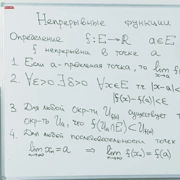 Непрерывные функции
Определение f: E→ℝ a∈E
f непрерывна в точке a
1. Если a-предельная точка, то lim f
x→a
2. ∀ε>0 ∃δ>0 ∀x∈E тч |x-a|<
|f(x)-f(a)|<ε
3. Для любой окр-ти U_f(a) существует
окр-ть U_a, что f(U_a∩E)⊂U_f(a)
4. Для любой последовательности точек
lim x_n = a ⇒ lim f(x_n) = f(a)